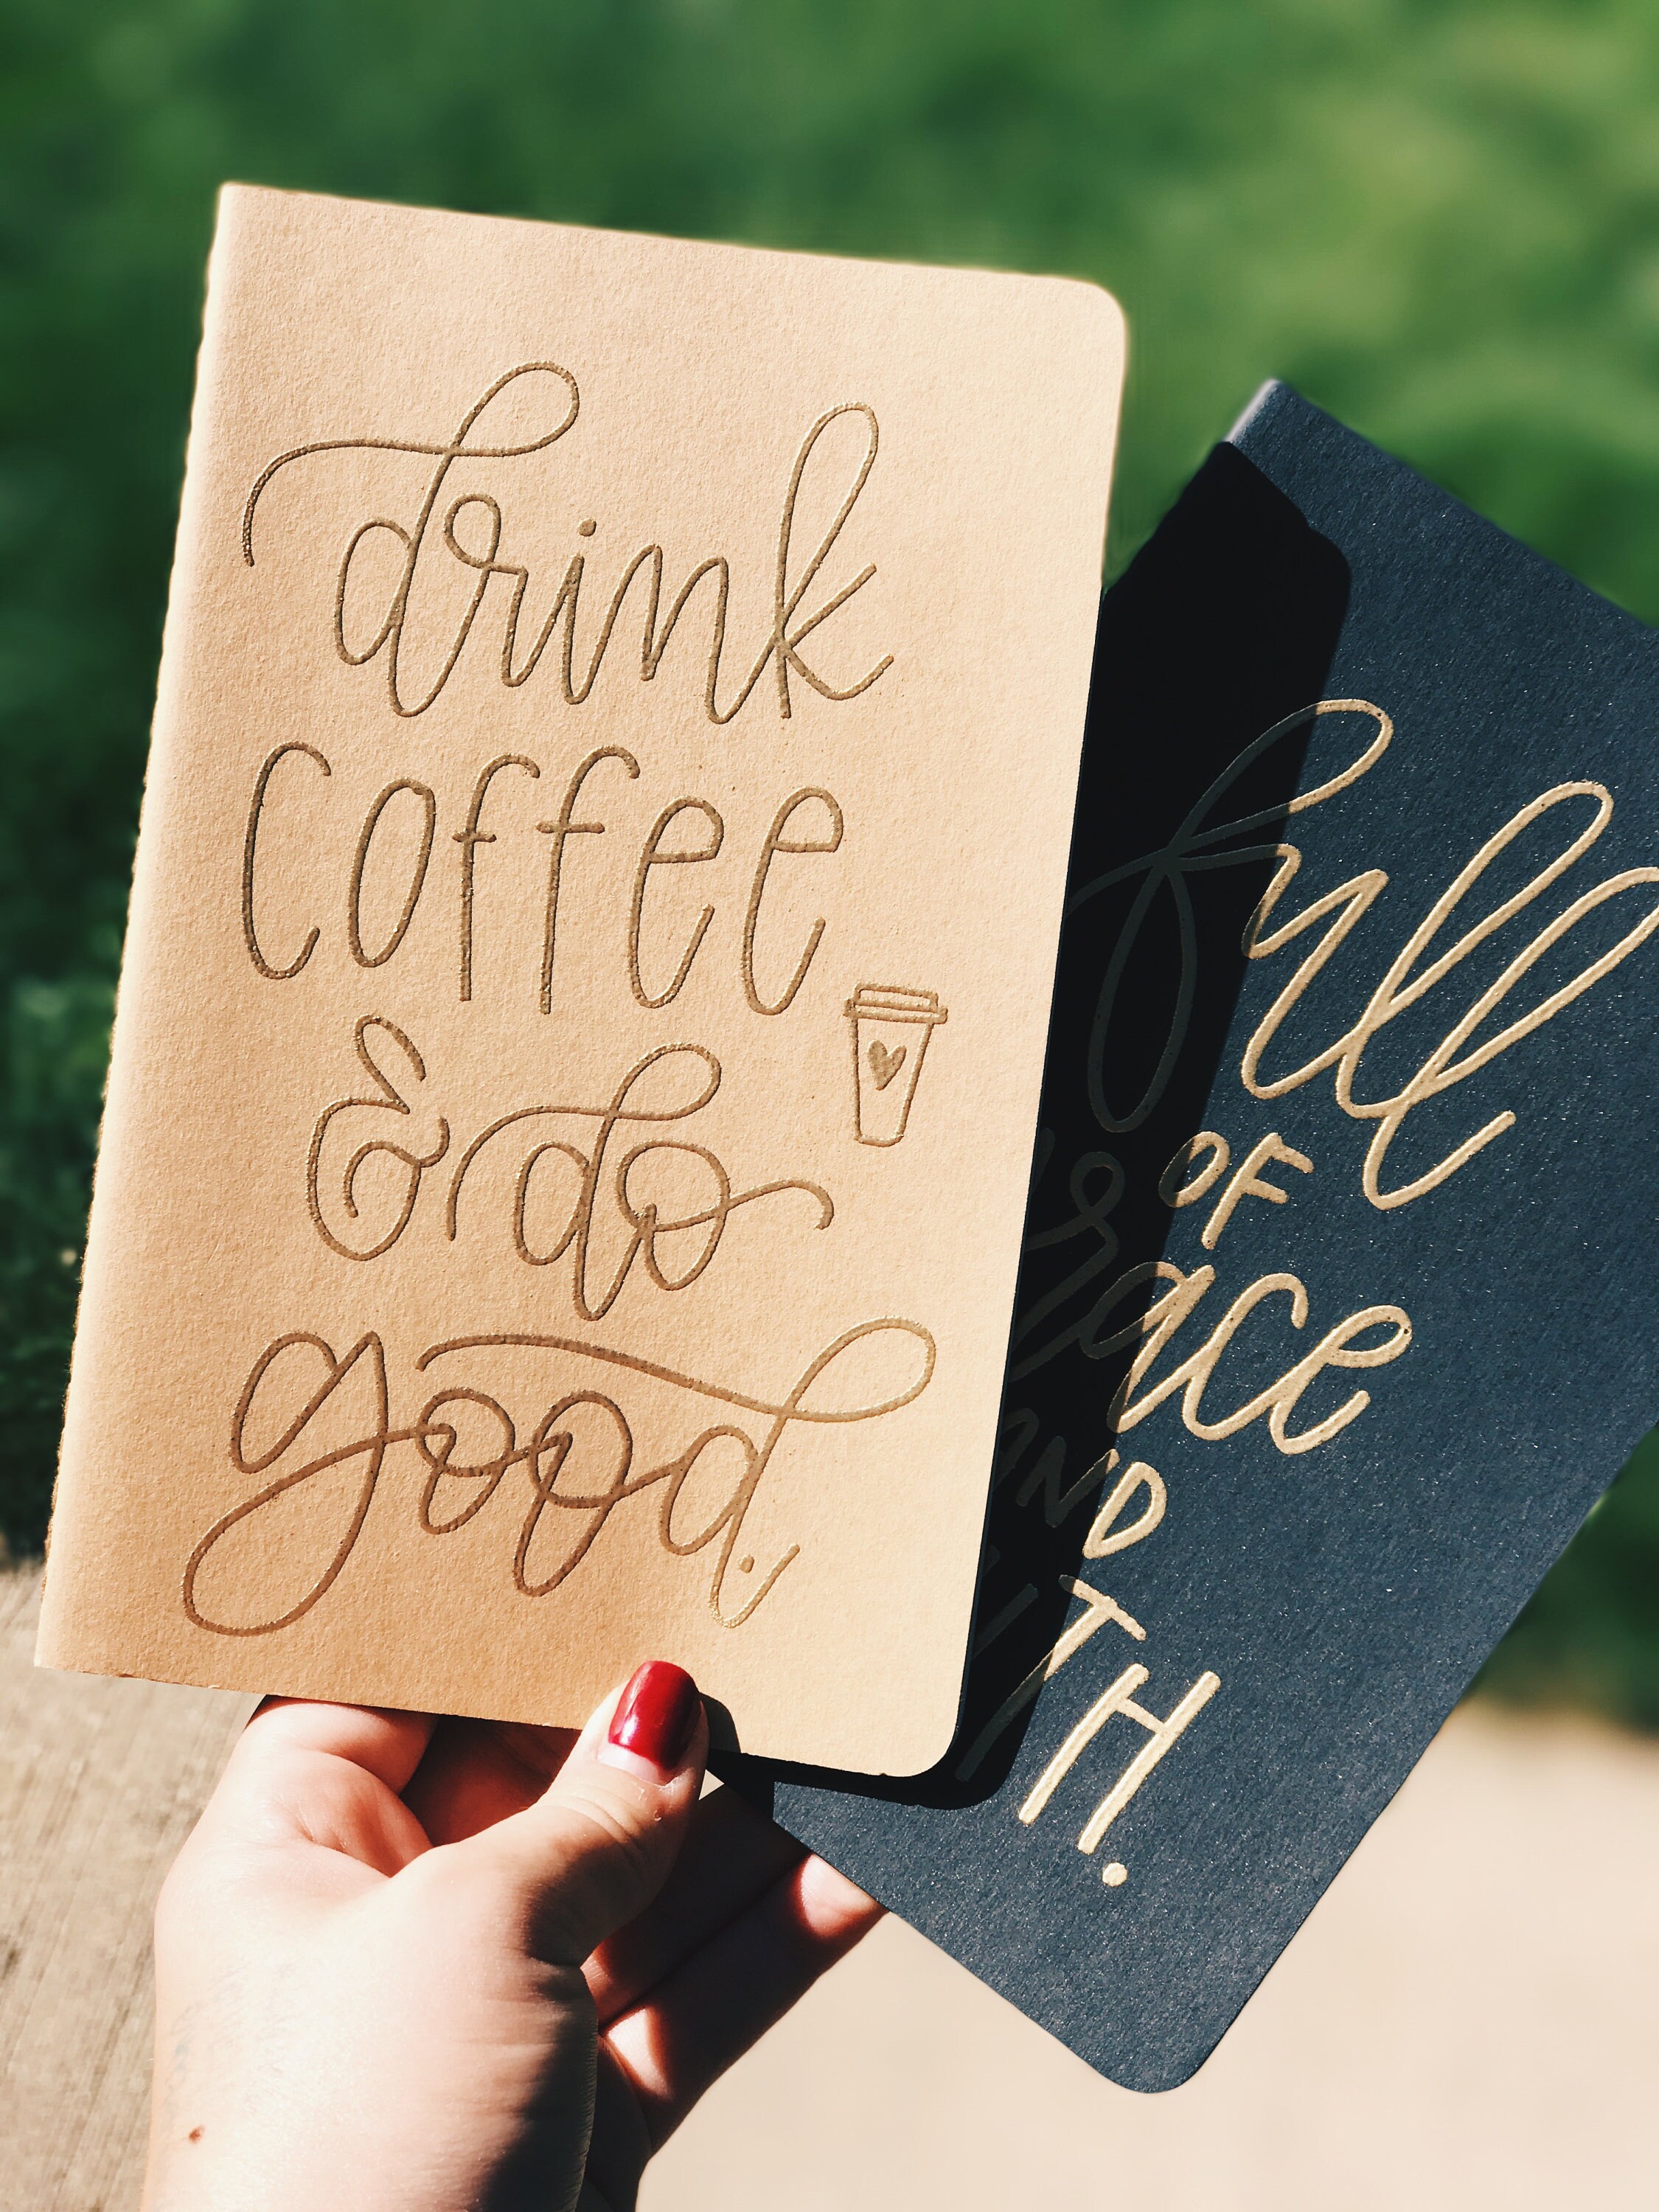 drink
coffee
& do
good.
full
OF
grace
AND
TH.